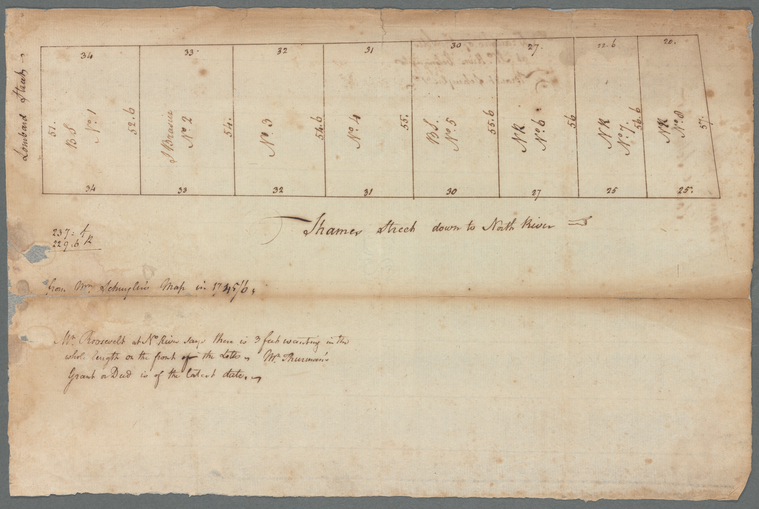 34 33 32 31 30 27. 22.6 20.
Lombard Street
51. BS No. 1 52.6
No. 2 54.
No. 3 54.6
No. 4 55.
BS. No. 5 55.6
NK No. 6 56
NK No. 7. 56.6
NK No. 8 57.
34 33 32 31 30 27 25 25.
Thames Street down to North River
237. f
229.6 R
from Wm. Map in
Mr. Roosevelt at No. River says there is 3 feet wanting in the
whole length or the front of the Lotts. Mr. Thurman's
Grant or Deed is of the latest date.